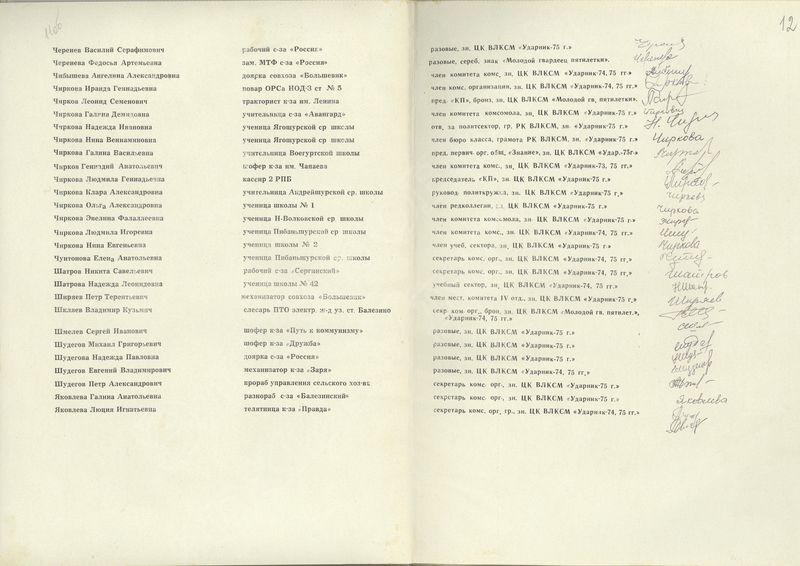 12
Черенев Василий Серафимович рабочий с-за «Россия» разовые, зн. ЦК ВЛКСМ «Ударник-75 г.»
Черенева Федосья Артемьевна зам. МТФ с-за «Россия» разовые, сереб. знак «Молодой гвардеец пятилетки».
Чибышева Ангелина Александровна доярка совхоза «Большевик» член комитета комс, зн. ЦК ВЛКСМ «Ударник-74, 75 гг»
Чиркова Ираида Геннадьевна повар ОРСа НОД-3 ст № 5 член комс. организации, зн. ЦК ВЛКСМ «Ударник-74, 75 гг»
Чирков Леонид Семенович тракторист к-за им. Ленина пред. «КП», бронз, зн. ЦК ВЛКСМ «Молодой гв, пятилетки».
Чиркова Галина Демидовна учительница с-за «Авангард» член комитета комсомола, зн. ЦК ВЛКСМ «Ударник-75 г.»
Чиркова Надежда Ивановна ученица Ягошурской ср школы отв, за политсектор, гр. РК ВЛКСМ, зн. «Ударник-75 г.» Н. Чирк
Чиркова Нина Вениаминовна ученица Ягошурской ср. школы член бюро класса, грамота РК ВЛКСМ, зн. «Ударник-75 г.» Чиркова
Чиркова Галина Васильевна учительница Воегуртской школы пред. первич. орг. общ, «Знание», зн. ЦК ВЛКСМ «Удар.-75г»
Чирков Геннадий Анатольевич шофер к-за им. Чапаева член комитета комс., зн. ЦК ВЛКСМ «Ударник-73, 75 гг»
Чиркова Людмила Геннадьевна кассир 2 РПБ председатель «КП», зн. ЦК ВЛКСМ «Ударник-75 г.»
Чиркова Клара Александровна учительница Андрейшурской ср. школы руковод. политкружка, зн. ЦК ВЛКСМ «Ударник-75 г,»
Чиркова Ольга Александровна ученица школы № 1 член редколлегии, зн. ЦК ВЛКСМ «Ударник-75 г.» Чиркова
Чиркова Эвелина Фалалеевна ученица Н-Волковской ср. школы член комитета комсомола, зн. ЦК ВЛКСМ «Ударник-75 г.»
Чиркова Людмила Игоревна ученица Пибаньшурской ср школы член комитета комс., зн. ЦК ВЛКСМ «Ударник-74, 75 гг»
Чиркова Нина Евгеньевна ученица школы № 2 член учеб, сектора, зн, ЦК ВЛКСМ «Ударник-75 г.» Чиркова
Чунтонова Елена Анатольевна ученица Пибаньшурской ср. школы секретарь комс, орг., зн. ЦК ВЛКСМ «Ударник-74, 75 гг,»
Шатров Никита Савельевич рабочий с-за «Сергинский» секретарь комс, орг., зн. ЦК ВЛКСМ «Ударник-74, 75 гг.»
Шатрова Надежда Леонидовна ученица школы № 42 учебный сектор, зн, ЦК ВЛКСМ «Ударник-74, 75 гг»
Ширяев Петр Терентьевич механизатор совхоза «Большевик» член мест, комитета IV отд., зн. ЦК ВЛКСМ «Ударник-75 г,» Ширяев
Шкляев Владимир Кузьмич слесарь ПТО электр. ж-д уз. ст. Балезино секр. ком орг., брон, зн. ЦК ВЛКСМ «Молодой гв. пятилет.»,
«Ударник-74, 75 гг.»
Шмелев Сергей Иванович шофер к-за «Путь к коммунизму» разовые, зн. ЦК ВЛКСМ «Ударник-75 г.»
Шудегов Михаил Григорьевич шофер к-за «Дружба» разовые, зн. ЦК ВЛКСМ «Ударник-75 г.»
Шудегова Надежда Павловна доярка с-за «Россия» разовые, зн. ЦК ВЛКСМ «Ударник-75 г.»
Шудегов Евгений Владимирович механизатор к-за «Заря» разовые, зн. ЦК ВЛКСМ «Ударник-74, 75 гг,»
Шудегов Петр Александрович прораб управления сельского хоз-ва секретарь комс орг, зн. ЦК ВЛКСМ «Ударник-75 г.»
Яковлева Галина Анатольевна разнораб с-за «Балезинский» секретарь комс. орг, зн. ЦК ВЛКСМ «Ударник-75 г.» Яковлева
Яковлева Люция Игнатьевна телятница к-за „Правда» секретарь комс, орг, гр., зн. ЦК ВЛКСМ «Ударник-74, 75 гг.»